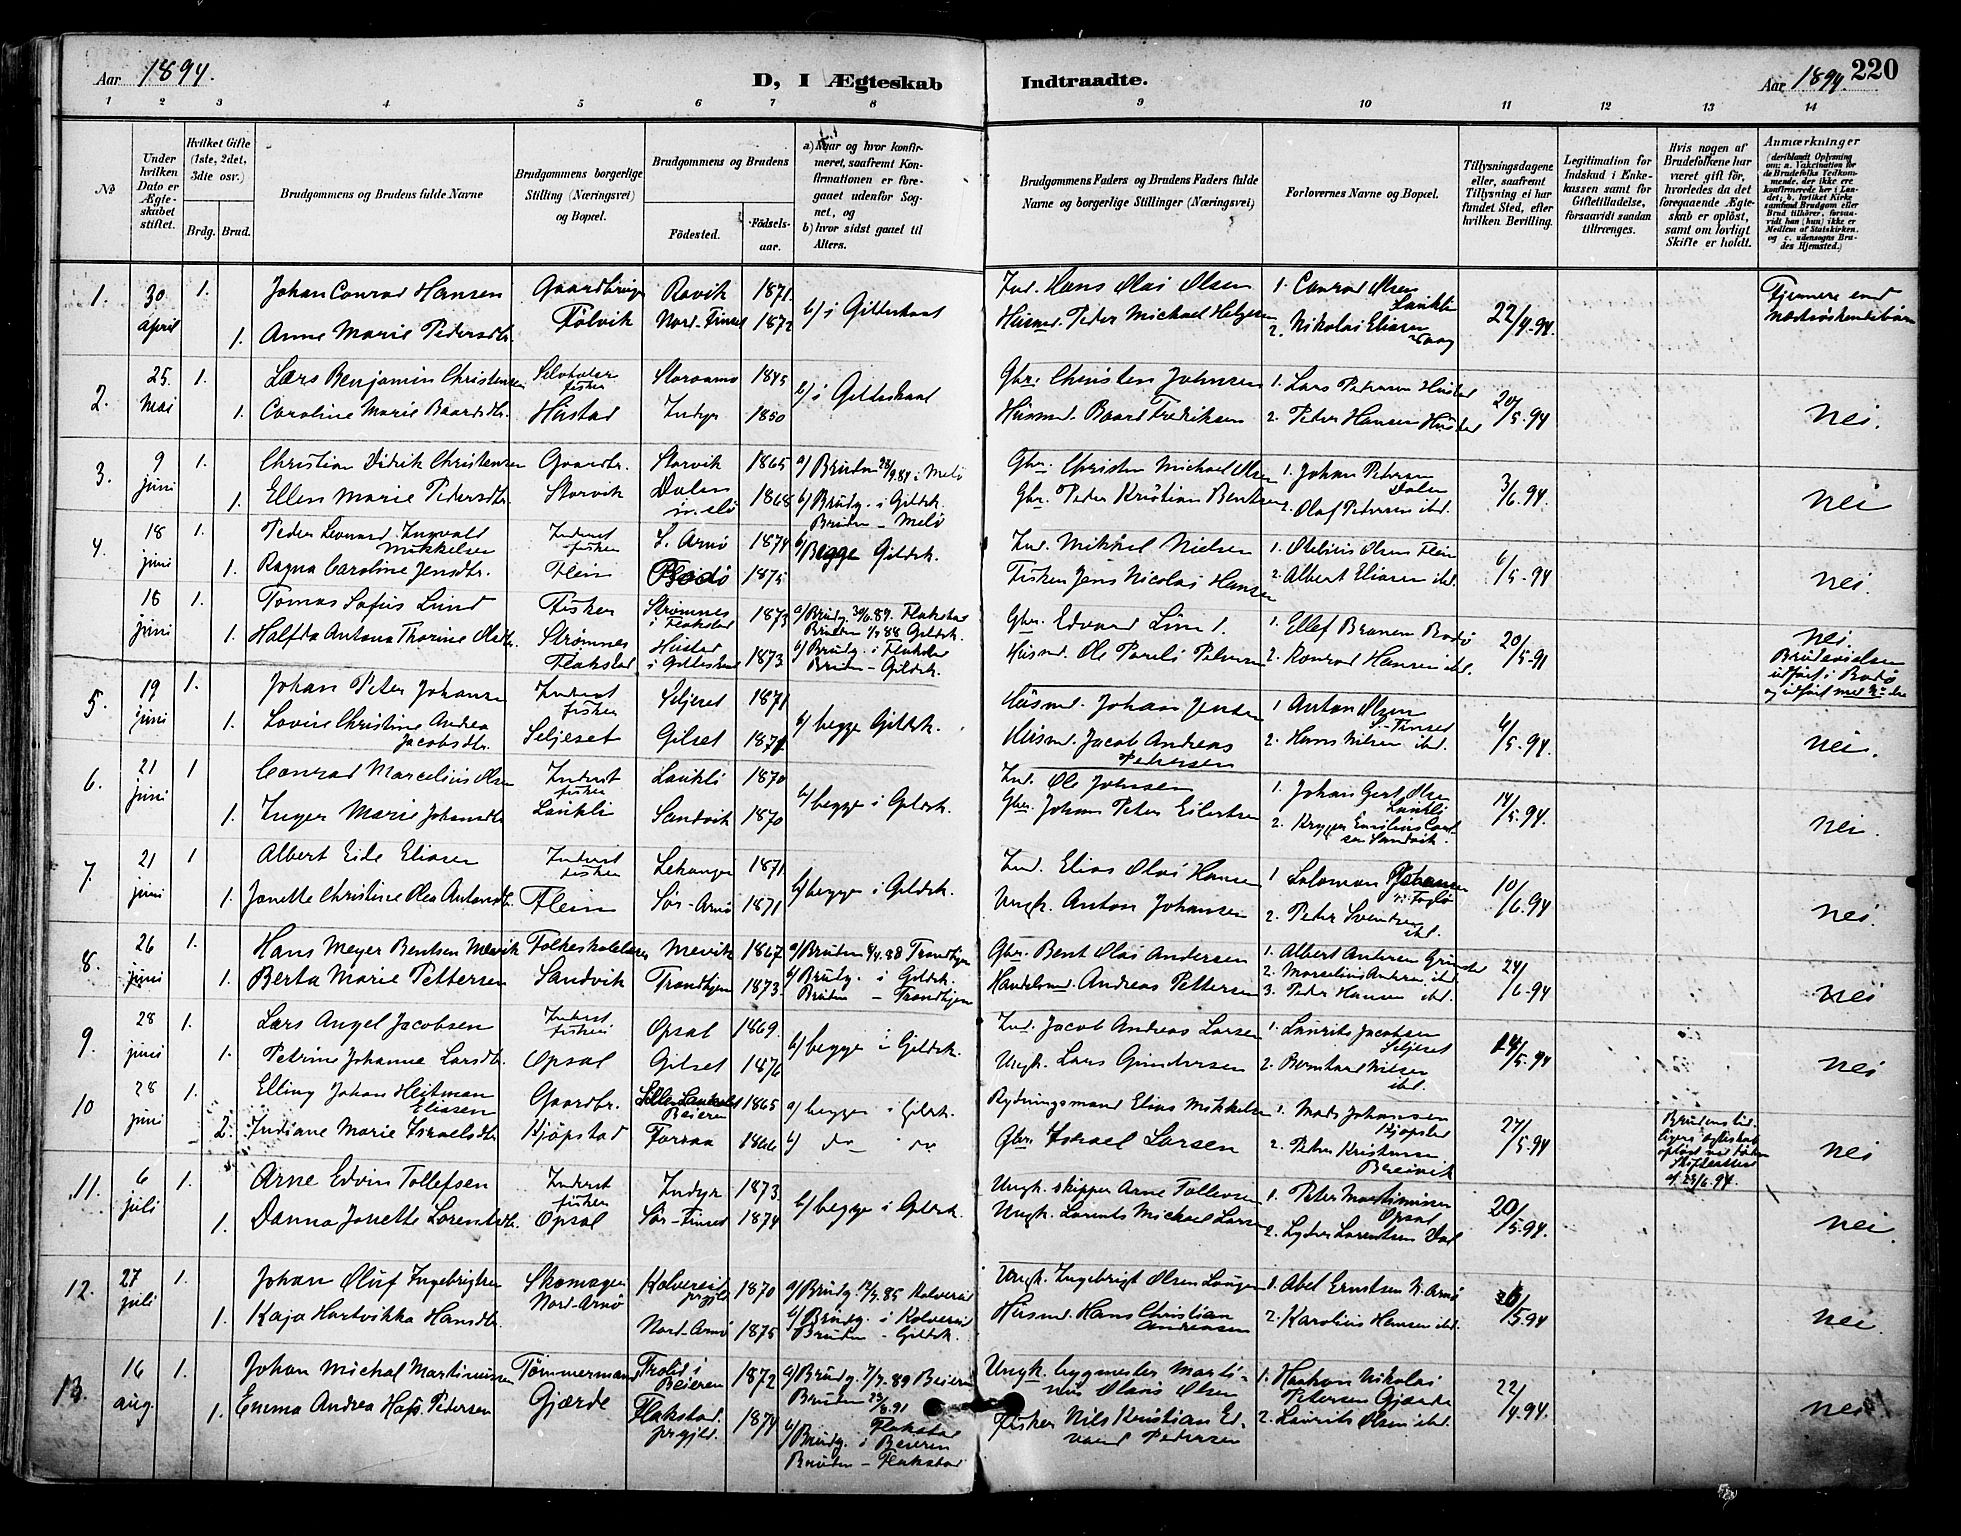 Aar 1894.
D, I Ægteskab Indtraadte.
Aar 1894. 220
1 2 3 4 5 6 7 8 9 10 11 12 13 14
No
Under hvilken Dato er Ægteskabet stiftet.
Hvilket Gifte (1ste, 2det, 3die osv.)
Brdg. Brud.
Brudgommens og Brudens fulde Navne
Brudgommens borgerlige Stilling (Næringsvei) og Bopæl.
Brudgommens og Brudens
Fødested.
Fødsels-aar.
a) Naar og hvor konfirmeret, saafremt Konfirmationen er foregaaet udenfor Sognet, og
b) hvor sidst gaaet til Alters.
Brudgommens Faders og Brudens Faders fulde Navne og borgerlige Stillinger (Næringsvei)
Forlovernes Navne og Bopæl.
Tillysningsdagene eller, saafremt Tillysning ei har fundet Sted, efter hvilken Bevilling.
Legitimation for Indskud i Enkekassen samt for Giftetilladelse, forsaavidt saadan tiltrænges.
Hvis nogen af Brudefolkene har været gift før, hvorledes da det foregaaende Ægteskab er opløst, samt om lovligt Skifte er holdt.
Anmærkninger
(deriblandt Oplysning om: a. Vakcination for de Brudefolks Vedkommende, der ikke ere konfirmerede her i Landet; b. hvilket Kirkesamfund Brudgom eller Brud tilhører, forsaavidt han (hun) ikke er Medlem af Statskirken, og c. udensogns Brudes Hjemsted.)
1. 30 april 1. Johan Conrad Hansen Gaardbruger Ravik 1871 b/ i Gildeskaal Ind. Hans Olai Olsen 1. Conrad Olsen Laukli 22/4-94. Fjernere end næstsøskendebørn
1. Anne Marie Pedersdtr. Følvik Nord-Finset 1872 Husmd. Peder Michael Helgesen 2. Nikolai Eliasen Vaag
2. 25. Mai 1. Lars Benjamin Christensen Selveier fisker Storarnø 1845 b/ i Gildeskaal Gbr. Christen Johnsen 1. Lars Pedersen Hustad 20/5-94 nei.
1. Caroline Marie Baardsdtr. Hustad Indyr 1850 Husmd. Baard Fredriksen 2. Peder Hansen Hustad
3. 9 juni 1. Christian Didrik Christensen Gaardbr. Storvik 1865 a/ Bruden 28/9.84 i Melø Gbr. Christen Michael Olsen 1. Johan Pedersen Dalen 3/6.94 nei
1. Ellen Marie Pedersdtr. Storvik Dalen i Melø 1868 b/ Brudg. i Gildsk. Bruden - Melø Gbr. Peder Kristian Bentsen 2. Olaf Pedersen ibd.
4. 18 juni 1. Peder Leonard Ingvald Mikkelsen Inderst fisker S. Arnø 1874 b/ Begge Gildsk. Ind. Mikkel Nielsen 1. Otelius Olsen Flein 6/5-94 nei.
1. Ragna Caroline Jensdtr. Flein Bodø 1875 Fisker Jens Nicolai Hansen 2. Albert Eliasen ibd.
18 juni 1. Tomas Sofus Lund Fisker Strømnes i Flakstad 1873 a/ Brudg. 30/6.89. Flakstad Bruden 1/7 88 Gildsk. Gbr. Edvard Lund. 1. Ellef Branem Bodø 20/5-91 nei.
1. Halfda Antona Thorine Olsdtr Strømnes Flakstad Hustad i Gildeskaal 1873 b/ Brudg. i Flakstad Bruden - Gildsk. Husmd. Ole Pareli Pedersen 2. Konrad Hansen ibd. Brudevielsen udført i Bodø
5. 19 juni 1. Johan Peter Johansen Inderst fisker Seljeset 1871 b/ begge Gildsk. Husmd. Johan Jensen 1 Anton Olsen S-Finset 6/5-94. nei.
1. Lovise Christine Andrea Jacobsdtr. Seljeset Gilset 1871 Husmd. Jacob Andreas Pedersen 2. Hans Nilsen ibd.
6. 21 juni 1 Conrad Marcelius Olsen Inderst fisker Laukli 1870 b/ begge i Gildsk. Ind. Ole Johnsen 1. Johan Gert Olsen Laukli 14/5.94. nei.
1. Inger Marie Johansdtr Laukli Sandvik 1870 Gbr. Johan Peter Eilertsen 2. Krygger Emilius Sandvik.
7. 21 juni 1 Albert Eide Eliasen Inderst fisker Lekanger 1871 b/ begge i Gildsk. Ind. Elias Olai Hansen 1 Salomon Johansen Fuglø 10/6.94 nei.
1. Jonette Christine Olea Antonsdtr. Flein Sør-Arnø 1871 Ungk. Anton Johansen 2. Peder Svendsen ibd.
8. 26 juni 1. Hans Meyer Bentsen Mevik Folkeskolelærer Mevik 1867 a/ Bruden 8/4.88 Trondhjem Gbr. Bent Olai Andersen 1. Albert Antonsen Grimstad 24/6-94 nei
2. Marselius Antonsen ibd.
1. Berta Marie Pettersen Sandvik Trondhjem 1873. b/ Brudg. i Gildsk. Bruden - Trondhjem Handelsmd. Andreas Pettersen 3. Peder Hansen ibd.
9. 28 juni 1. Lars Angel Jacobsen Inderst fisker Opsal 1869. b/ begge i Gildsk. Ind. Jacob Andreas Larsen 1. Laurits Jacobsen Seljeset 14/5-94 nei
1. Petrine Johanna Larsdtr. Opsal Gilset 1876 Ungk. Lars Gundersen 2. Bernhard Nilsen ibd.
10 28 juni 1. Elling Johan Heitman Eliasen Gaardbr. Beieren 1865 a/ begge i Gildsk. Rydningsmand Elias Mikkelsen 1. Mads Johansen Kjøpstad 27/5-94 nei
2. Indiane Marie Israelsdtr Kjøpstad Forsaa 1866 b/ do do Gbr. Israel Larsen 2. Peder Kristensen
11. 6 juli 1. Arne Edvin Tollefsen Inderst fisker Indyr 1873. b/ begge i Gildsk. Ungk. skipper Arne Tollevsen 1. Peter Martinussen Opsal 20/5-94. nei.
1. Danna Jonette Lorentsdtr. Opsal Sør-Finset 1874 Ungk. Lorents Michael Larsen 2. Lyder Lorentsen Dal
12. 27 juli 1. Johan Oluf Ingebrigtsen Skomager Kolvereid prgjld 1870 a/ Brudg. 12/7.85 Kolvereid Ungk. Ingebrigt Olsen 1. Abel Ernstsen N. Arnø 6/5.94 nei.
1. Kaja Hartvikka Hansdtr. Nord-Arnø Nord-Arnø 1875 b/ Brudg. i Kolvereid Bruden - Gildsk. Husmd. Hans Christian Andreasen 2. Karolius Hansen ibd.
13. 16 aug. 1. Johan Michal Martinussen Tømmermand Trolid i Beieren 1872 a/ Brudg. 7/7.89 Beieren Bruden 23/8.91 Flakstad Ungk. bygmester Martinus Olaus Olsen 1. Haakon Nikolai Petersen Gjærde 22/4.94. nei
1. Emma Andrea Hafs. Pedersen Gjærde Flakstad prgjld. 1874 b/ Brudg. i Beieren Bruden - Flakstad Fisker Nils Kristian Edvard Pedersen 2. Laurits Olsen ibd.